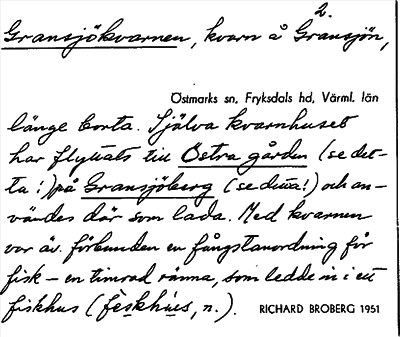 2.
Gransjökvarnen, kvarn å Gransjön,
Östmarks sn, Fryksdals hd, Värml. län
länge borta. Själva kvarnhuset
har flyttats till Östra gården (se det-
ta!) på Gransjöberg (se detta!) och an-
vändes där som lada. Med kvarnen
var äv. förbunden en fångstanordning för
fisk – en timrad ränna, som ledde in i ett
fiskhus (fèskhús, n.).
RICHARD BROBERG 1951